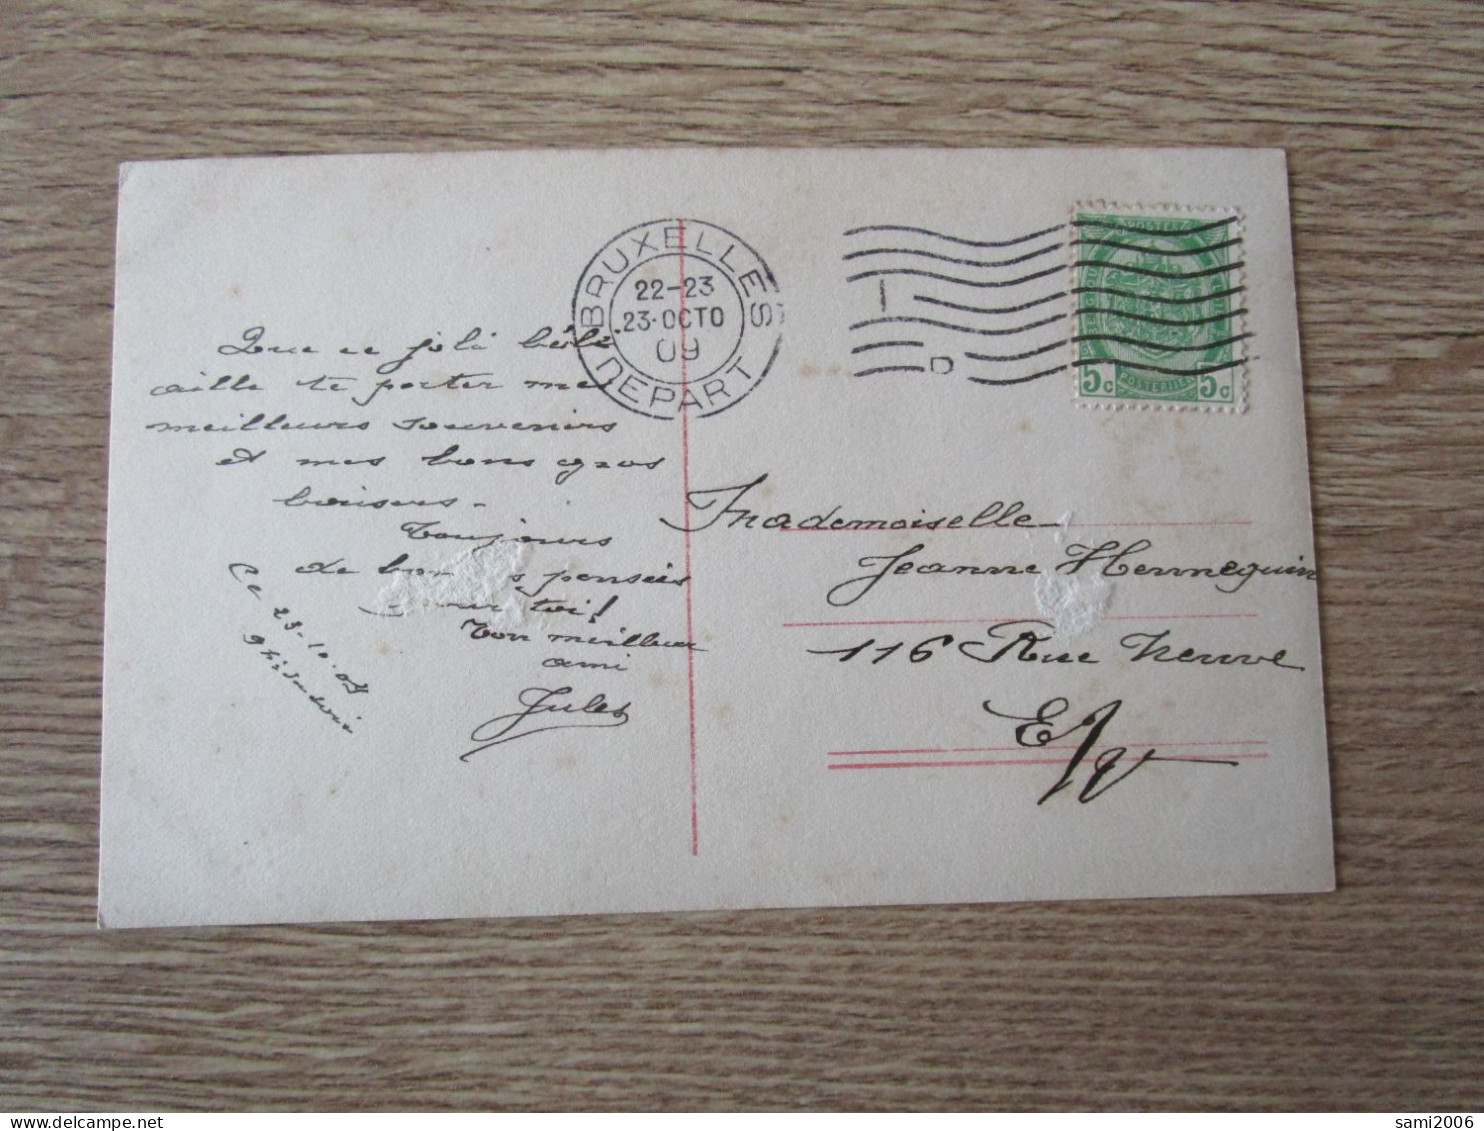 BRUXELLES
22-23
23·OCTO
09
DEPART
1
D
POSTES
5c 5c
POSTERIJEN
Que ce joli bébé
aille te porter mes
meilleurs souvenirs
et mes bons gros
baisers -
Toujours
de pensées
toi!
Ton meilleur
ami
Jules
Ce 23-10-09
Mademoiselle
Jeanne Hennequin
116 Rue Neuve
E/V
sami2006